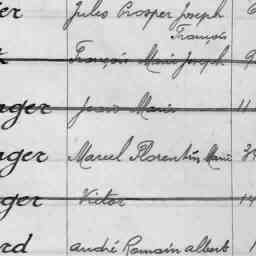 er Jules Prosper Joseph
François
François Marie Joseph 9
ager Jean Marie 11
ager Marcel Florentin Marie 3
ger Victor 14
rd André Romain Albert 1